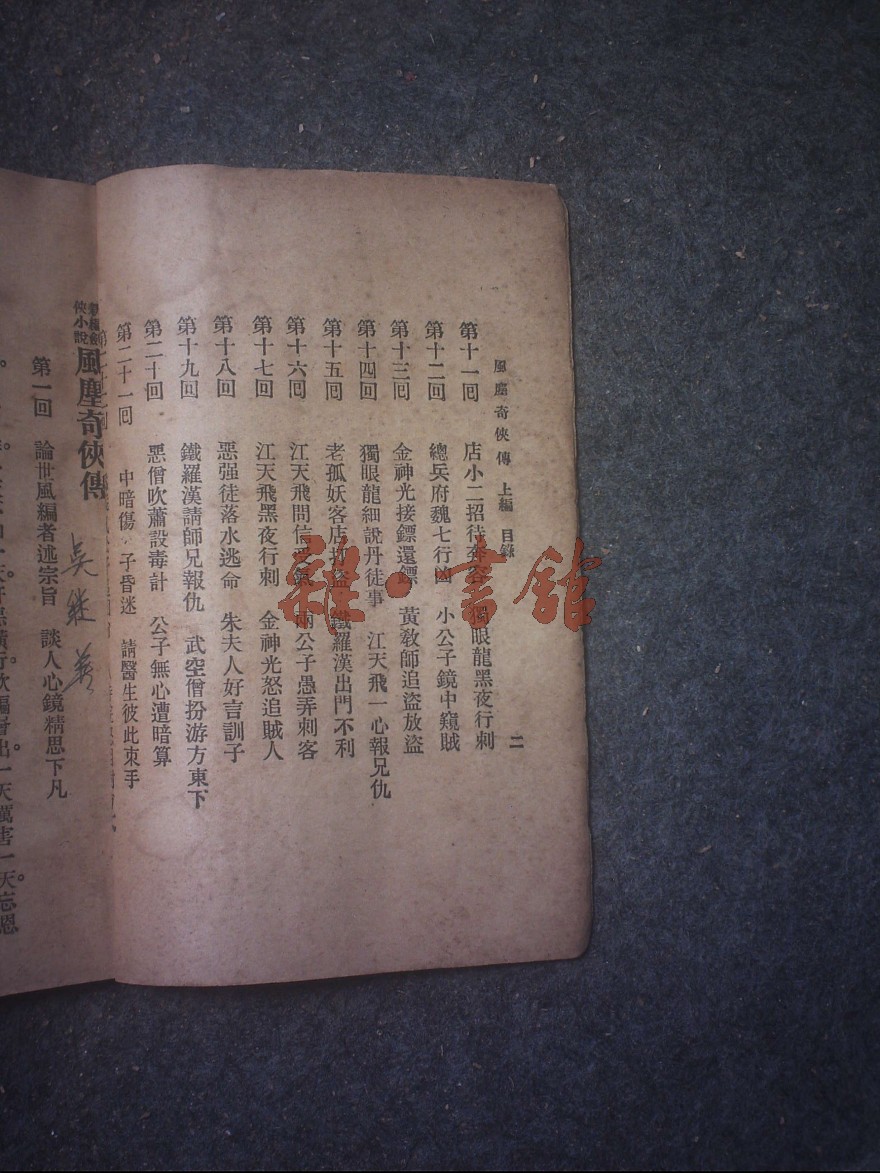 風塵奇俠傳 上編 目錄
二
第十一回 店小二招待奔客 獨眼龍黑夜行刺
總兵府魏七行凶 小公子鏡中窺賊
第十二回
第十三回 金神光接鏢還鏢 黃教師追盜放盜
第十四回 獨眼龍細說丹徒事 江天飛一心報兄仇
第十五回 老孤妖客店打盜 鐵羅漢出門不利
第十六回 江天飛問信受氣 兩公子愚弄刺客
第十七回 江天飛黑夜行刺 金神光怒追賊人
第十八回 惡强徒落水逃命 朱夫人好言訓子
第十九回 鐵羅漢請師兄報仇 武空僧扮游方東下
第二十回 惡僧吹蕭設毒計 公子無心遭暗算
第二十一回 中暗傷 子昏迷 請醫生彼此束手
俠小說
風塵奇俠傳
吳
第一回 論世風編者述宗旨 談人心鏡精思下凡
出一天厲害一天忘恩
雜·書館